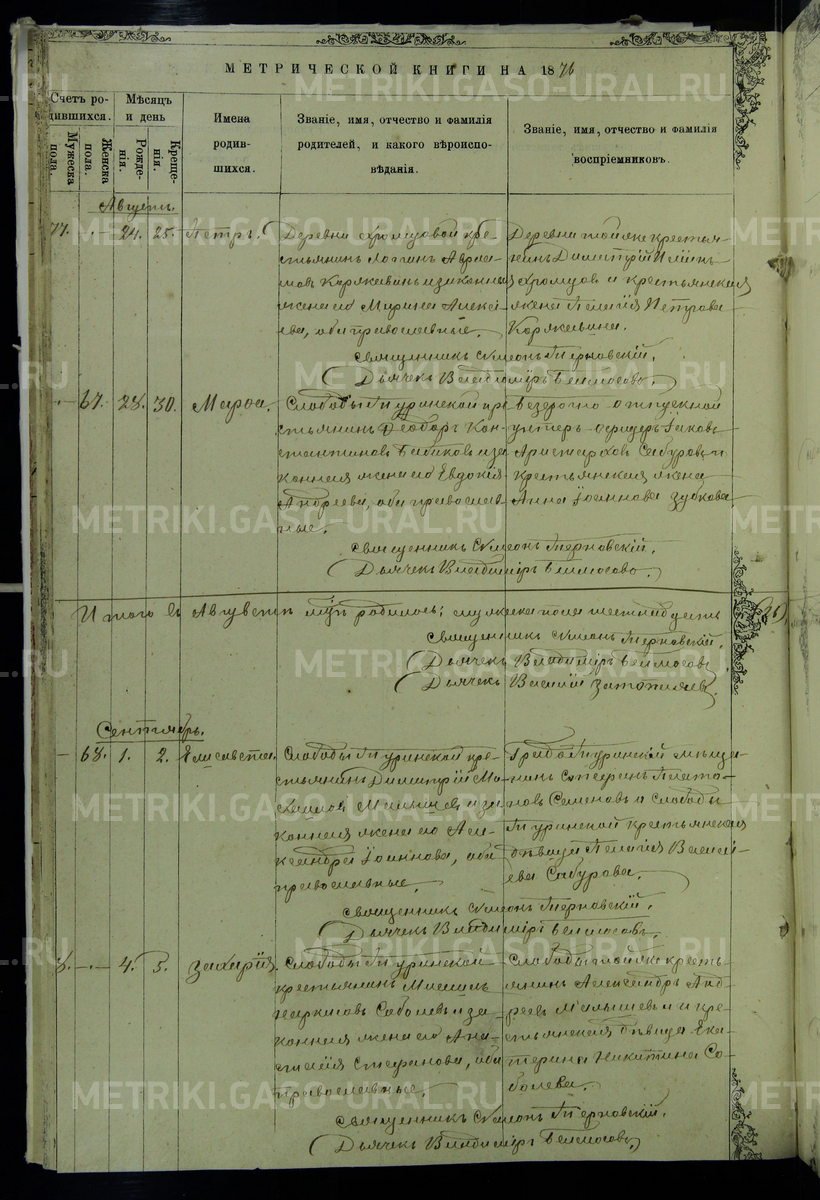 МЕТРИЧЕСКОЙ КНИГИ НА 1876
Счетъ родившихся.
Мѣсяцъ и день
Имена родившихся.
Званіе, имя, отчество и фамилія родителей, и какого вѣроисповѣданія.
Званіе, имя, отчество и фамилія воспріемниковъ.
Мужеска пола.
Женска пола.
Рожденія.
Крещенія.
Августъ.
77. — 24. 25. Петръ.
Деревни Хромцовой кре-
стьянинъ
Корякинъ и законная
жена его Марина Алексѣ-
ева, оба православные.
Деревни тойже крестья-
нинъ Димитрій Ильинъ
Хромцовъ и крестьянская
жена Пелагія Петрова
Корякина.
Священникъ Симеонъ Терновскій.
Дьячекъ Владиміръ
— 67. 28. 30. Марѳа.
Слободы Туринской кре-
стьянинъ Ѳеодоръ Кон-
стантиновъ Бабиковъ и за-
конная жена его Евдокія
Андреева, оба православ-
ные.
безсрочно отпускной
унтеръ-офицеръ Іаковъ
Аристарховъ Сабуровъ и
крестьянская жена
Анна Іоаннова Зубкова
Священникъ Симеонъ Терновскій.
Дьячекъ Владиміръ
Итого въ Августѣ родилось: мужеска пола
Священникъ Симеонъ Терновскій.
Дьячекъ Владиміръ
Дьячекъ Василій
Сентябрь.
— 68. 1. 2. Елисавета.
Слободы Туринской кре-
стьянинъ Димитрій Ми-
хаиловъ Малышевъ и за-
конная жена его Але-
ксандра Іоаннова, оба
православные.
Града Туринска мѣща-
нинъ Стефанъ Плато-
новъ Семеновъ и Слободы
Туринской крестьянская
дѣвица Пелагія Василі-
ева Сабурова.
Священникъ Симеонъ Терновскій.
Дьячекъ Владиміръ
— 4. 5. Захарія.
Слободы Туринской
крестьянинъ
Соболевъ и за-
конная жена его Ана-
стасія Стефанова, оба
православные.
Слободы тойже кресть-
янинъ Александръ Анд-
реевъ Малышевъ и кре-
стьянская дѣвица Ека-
терина Никитина Со-
болева.
Священникъ Симеонъ Терновскій.
Дьячекъ Владиміръ
METRIKI.GASO-URAL.RU